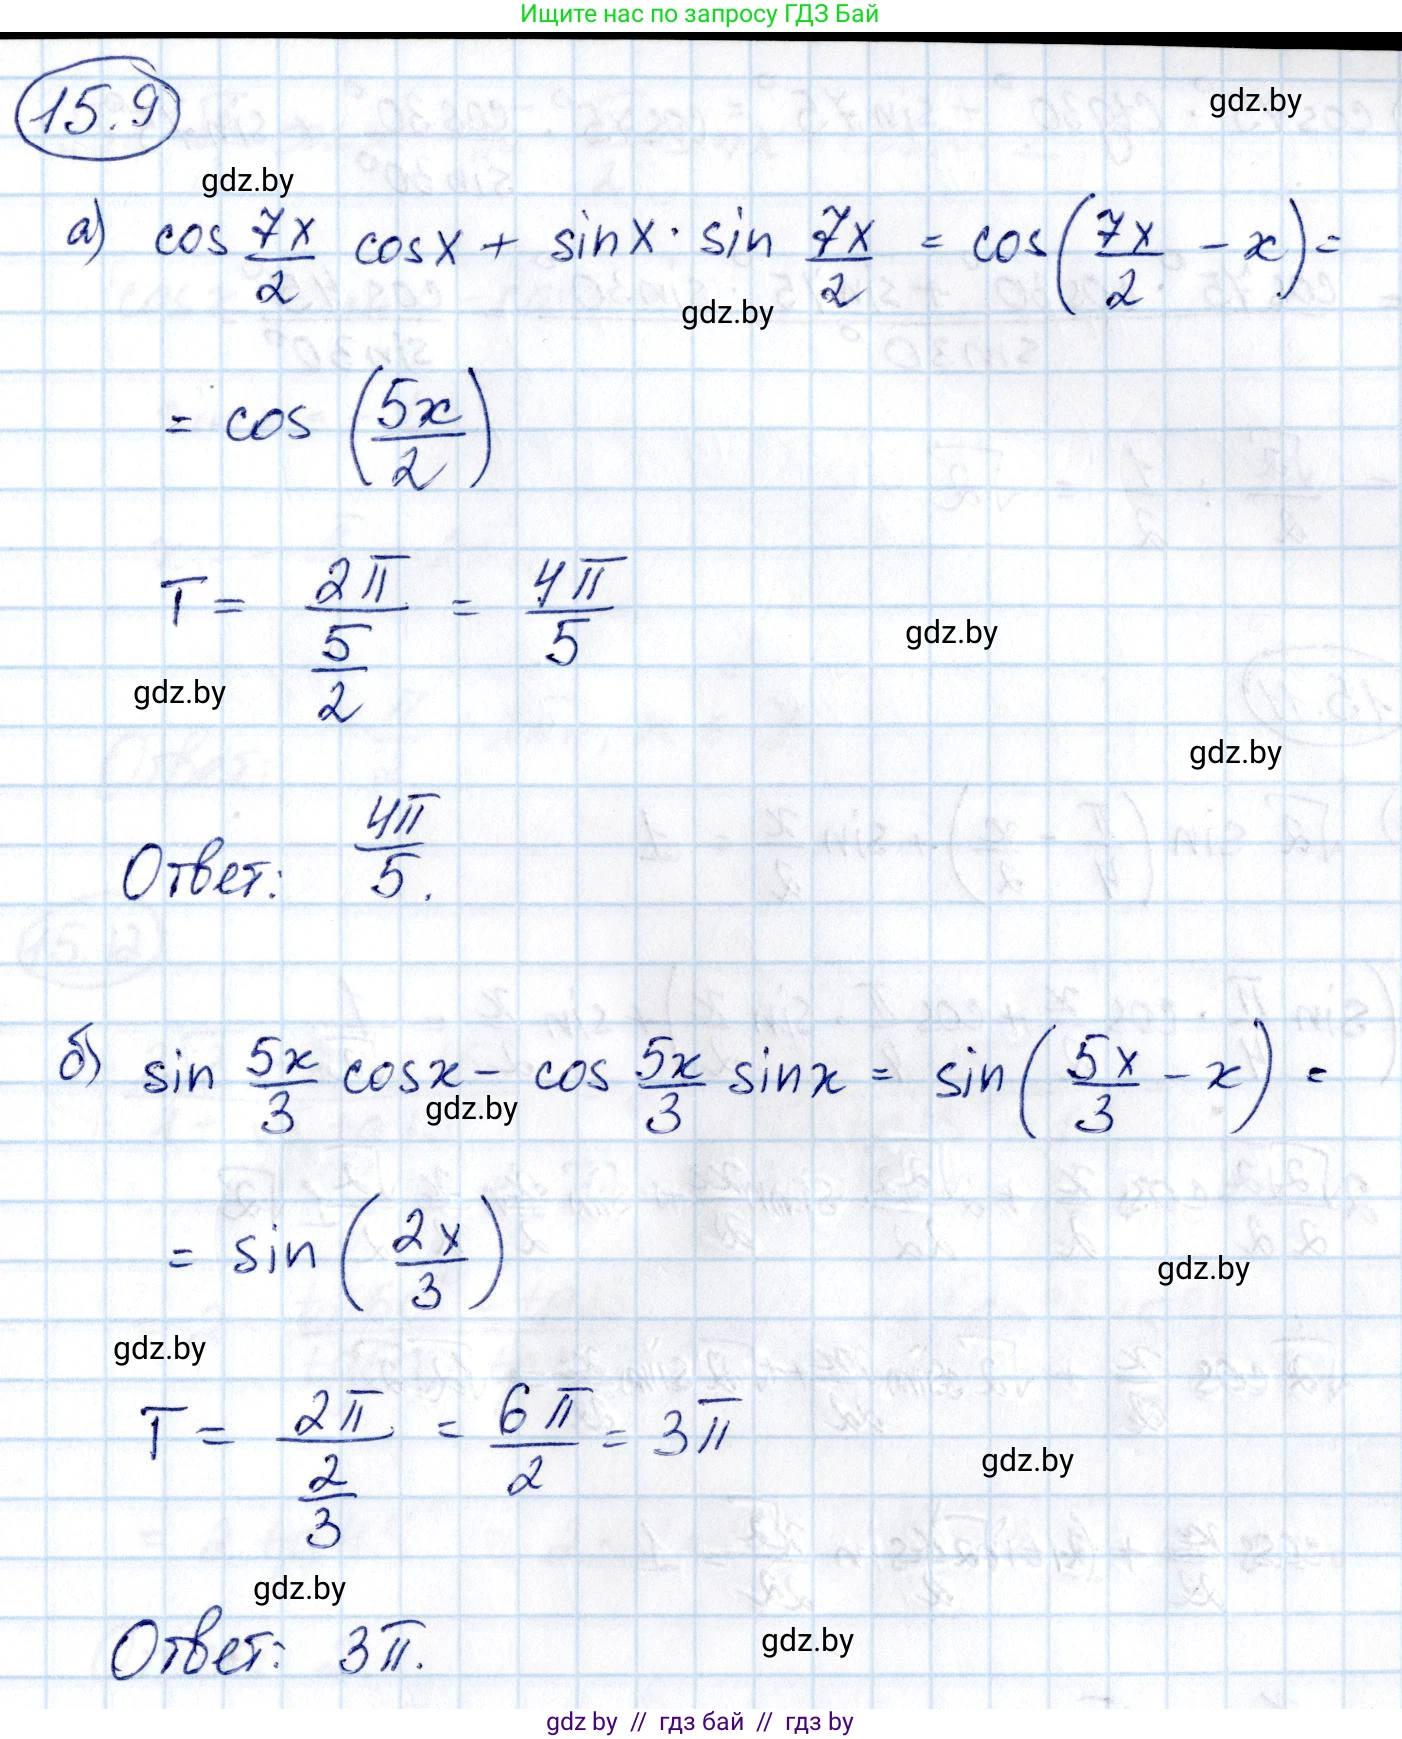 Ищите нас по запросу ГДЗ Бай
15.9
gdz.by
gdz.by
а) cos 7x/2 cosx + sinx · sin 7x/2 = cos(7x/2 - x) =
gdz.by
= cos (5x/2)
T = 2π/(5/2) = 4π/5
gdz.by
gdz.by
gdz.by
Ответ: 4π/5.
б) sin 5x/3 cosx - cos 5x/3 sinx = sin(5x/3 - x) =
gdz.by
= sin (2x/3)
gdz.by
gdz.by
T = 2π/(2/3) = 6π/2 = 3π
gdz.by
gdz.by
Ответ: 3π.
gdz.by
gdz by // гдз бай // гдз by